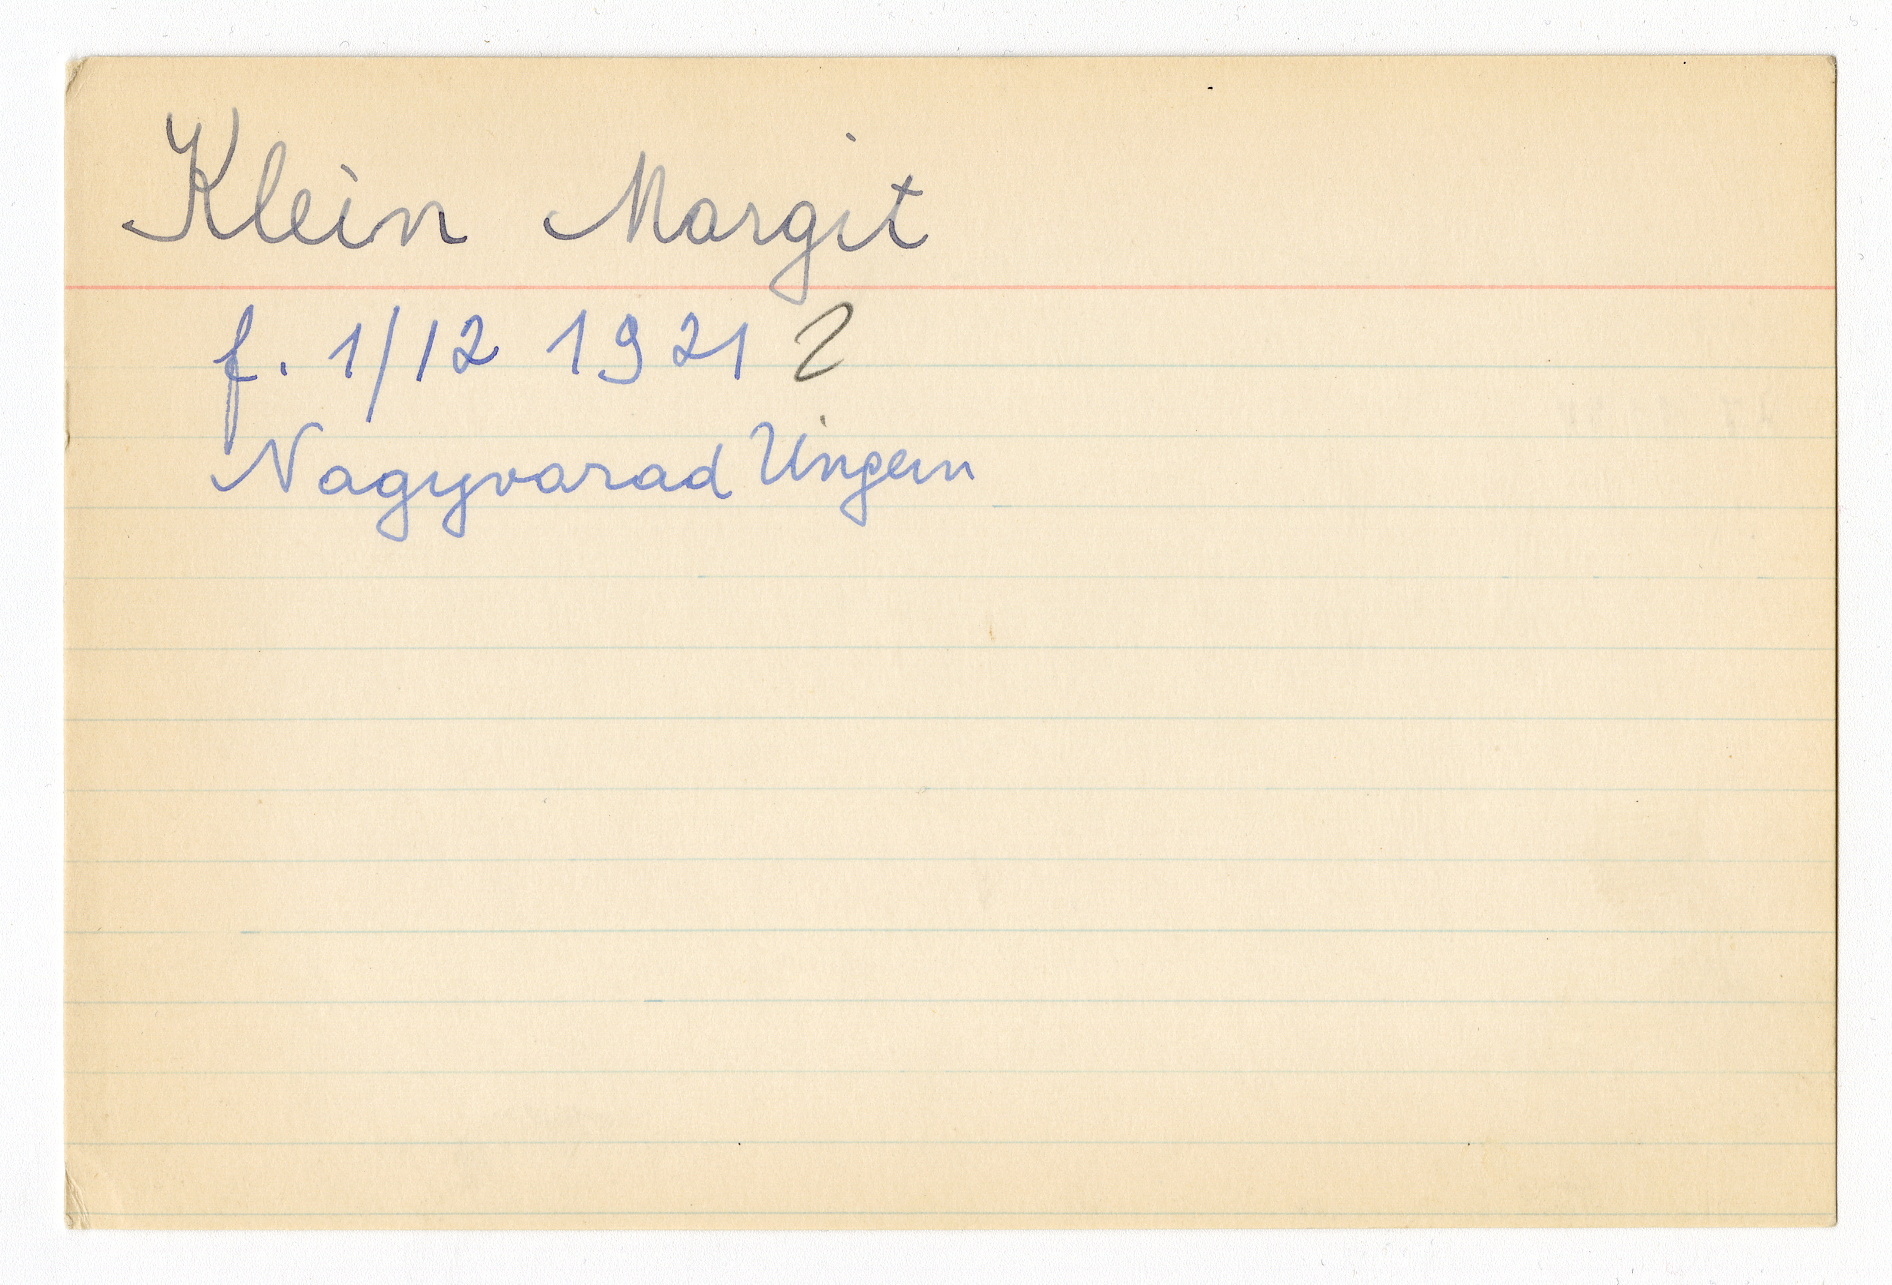 Klein Margit
f. 1/12 1921 2
Nagyvarad Ungern